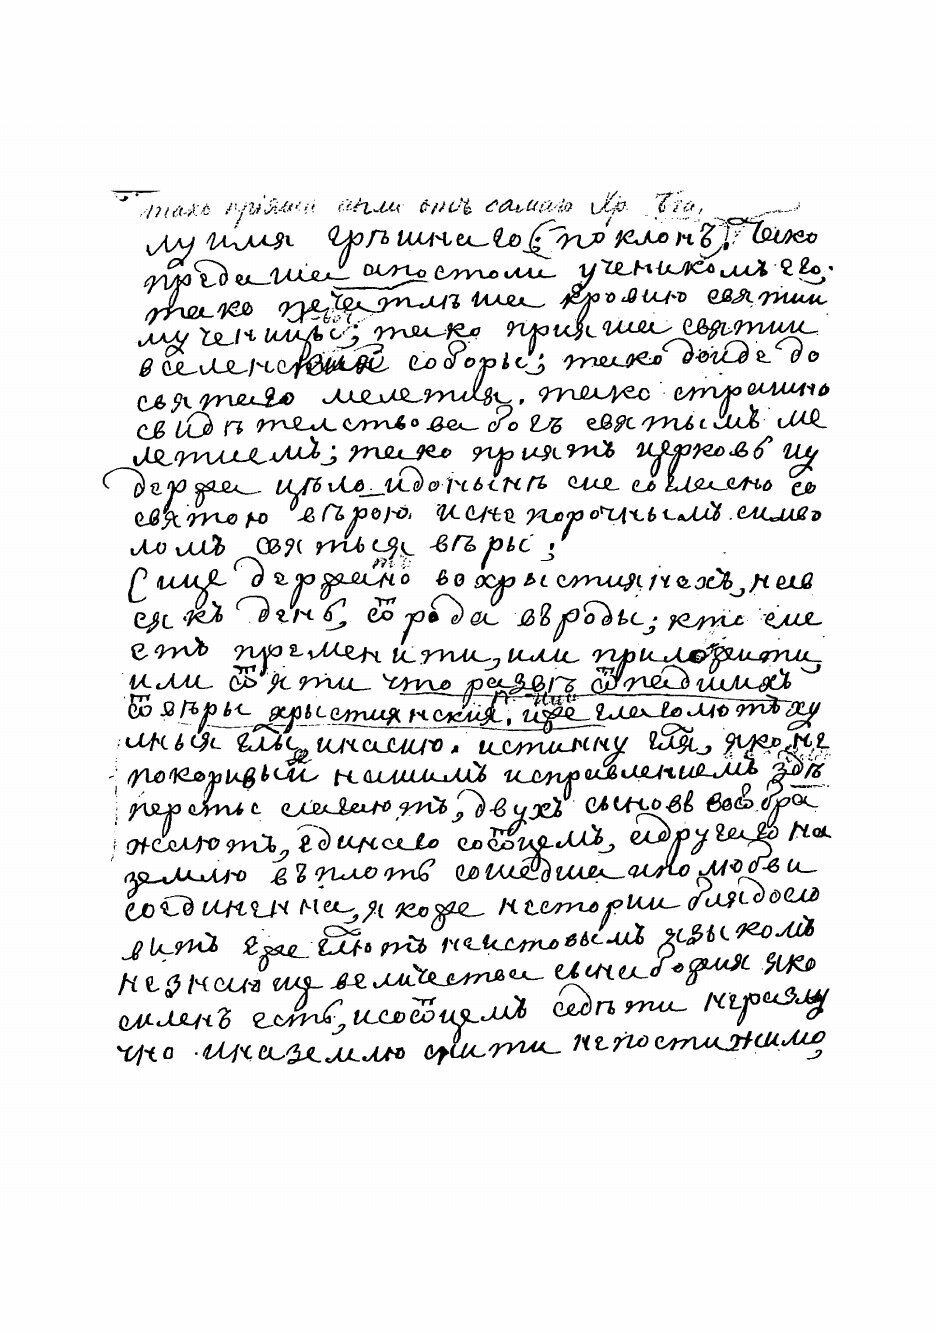 тако прїяша апли отъ самаго Хр. Бга.
лу имя грѣшнаго; поклонъ. Тако
предаша апостоли ученикомъ его.
тако печатлѣша кровию святии
мученицы; тако прияша святии
вселенския соборы; тако доиде до
святаго мелетия. тако страшно
свидѣтелствова богъ святымъ ме
летиемъ; тако приятъ церковь иу
держа цѣло идонынѣ сие согласно со
святою вѣрою. и снепорочнымъ симво
ломъ святыя вѣры;
Сице держано во хрыстиянехъ, нав
сякъ день, ѿ рода въ роды; кто сме
етъ пременити, или приложити,
или ѿяти что развѣ ѿпадшихъ
ѿвѣры хрыстиянския. иже глаголютъ ху
лныя глы, инасию. истинну гля, яко не
покоривый нашимъ исправлениемъ здѣ
персты слагаютъ, двухъ сыновъ воѡбра
жаютъ, единаго соѿцемъ, идругаго на
землю въплоть сошедша ипо любви
соединенна, якоже нестории блядосло
витъ еже глютъ неистовымъ языкомъ
незнающе величества сына божия яко
силенъ есть, исоѿцемъ седѣти неразлу
чно иназемлю снити непостижимо,